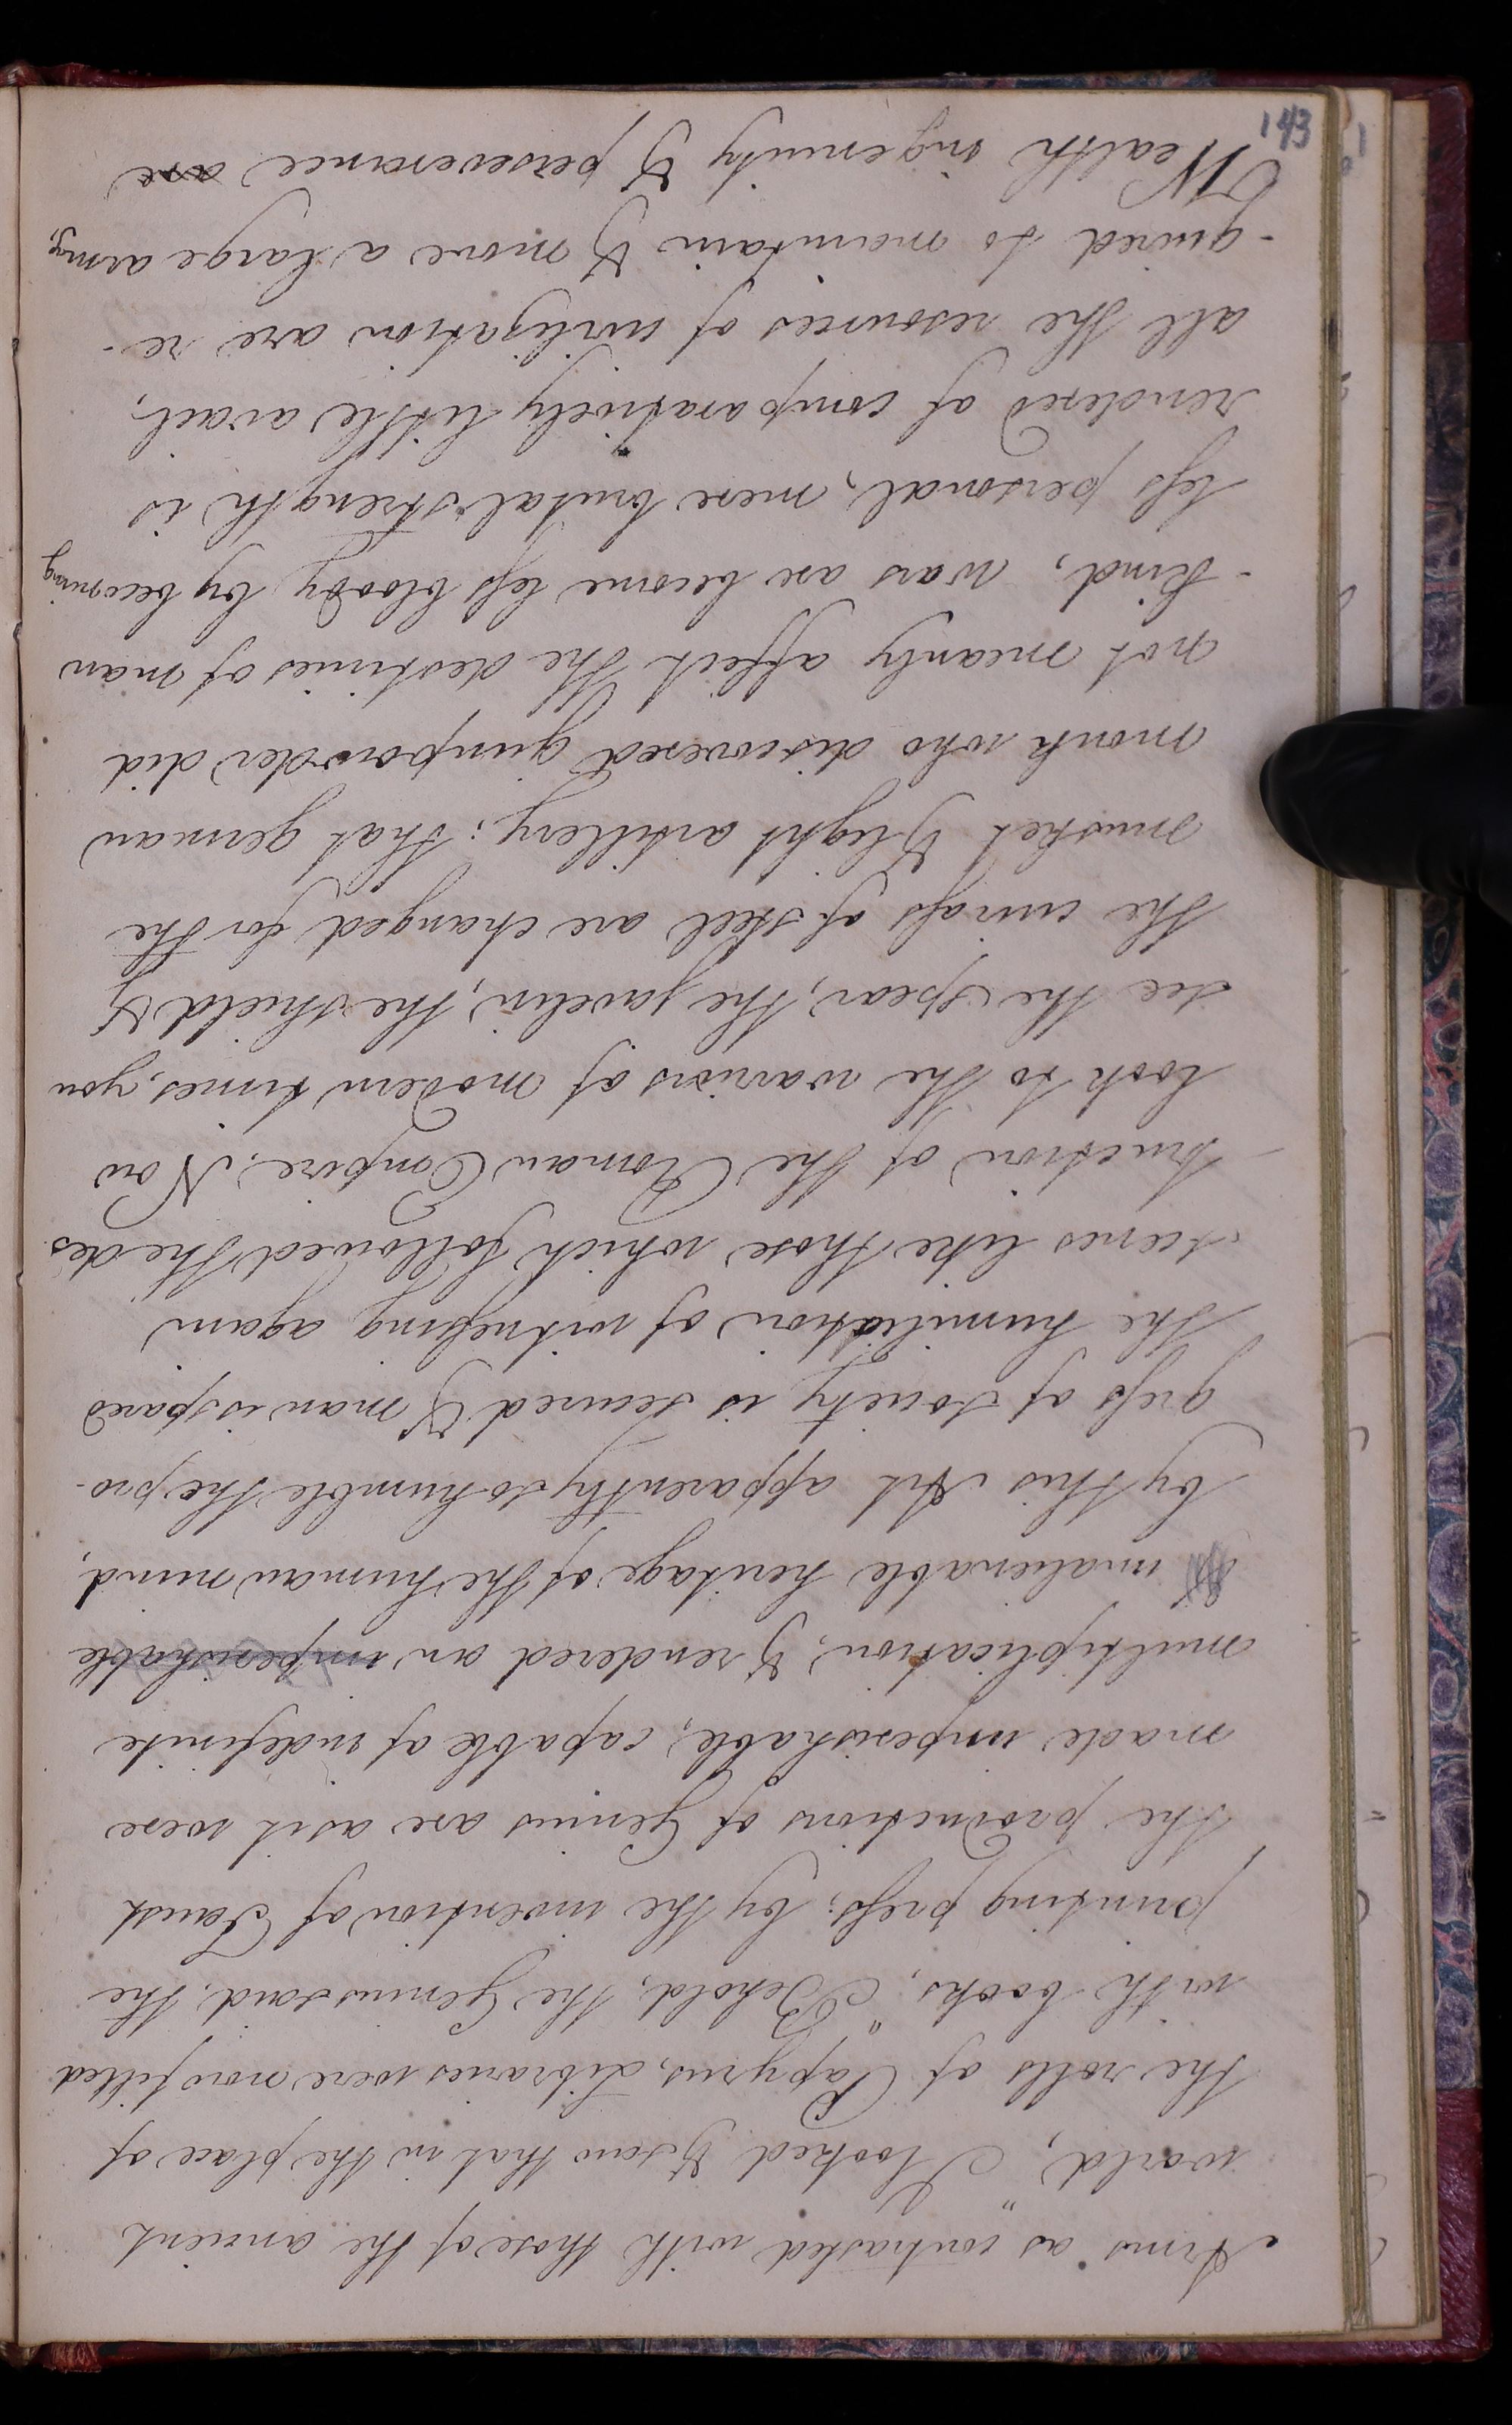 times as contrasted with those of the ancient
world", I looked & saw that in the place of
the rolls of Papyrus, Libraries were now filled
with books, "Behold, the Genius said, the
printing press; by the invention of Faust
the productions of Genius are as it were
made imperishable, capable of indefinite
multiplication, & rendered an imperishable
inalienable heritage of the human mind,
by this Art apparently so humble the pro-
gress of society is secured & man is spared
the humiliation of witnessing again
scenes like those which followed the des
-truction of the Roman Empire. Now
look to the warriors of modern times, you
see the spear, the javelin, the shield &
the cuirass of steel are changed for the
musket & light artillery; that german
monk who discovered gunpowder did
not meanly affect the destinies of man
-kind, wars are become less bloody by becoming
less personal, mere brutal strength is
rendered of comparatively little avail,
all the resources of civilization are re-
-quired to maintain & move a large army,
Wealth ingenuity & perseverance are
143